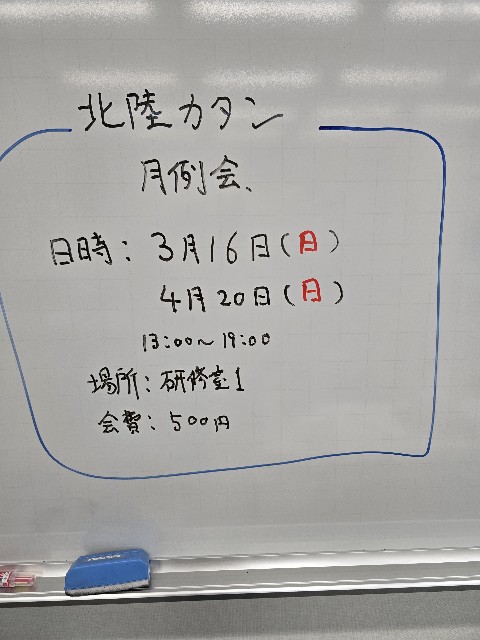 北陸カタン
月例会、
日時：3月16日(日)
4月20日(日)
13:00〜19:00
場所：研修室1
会費：500円